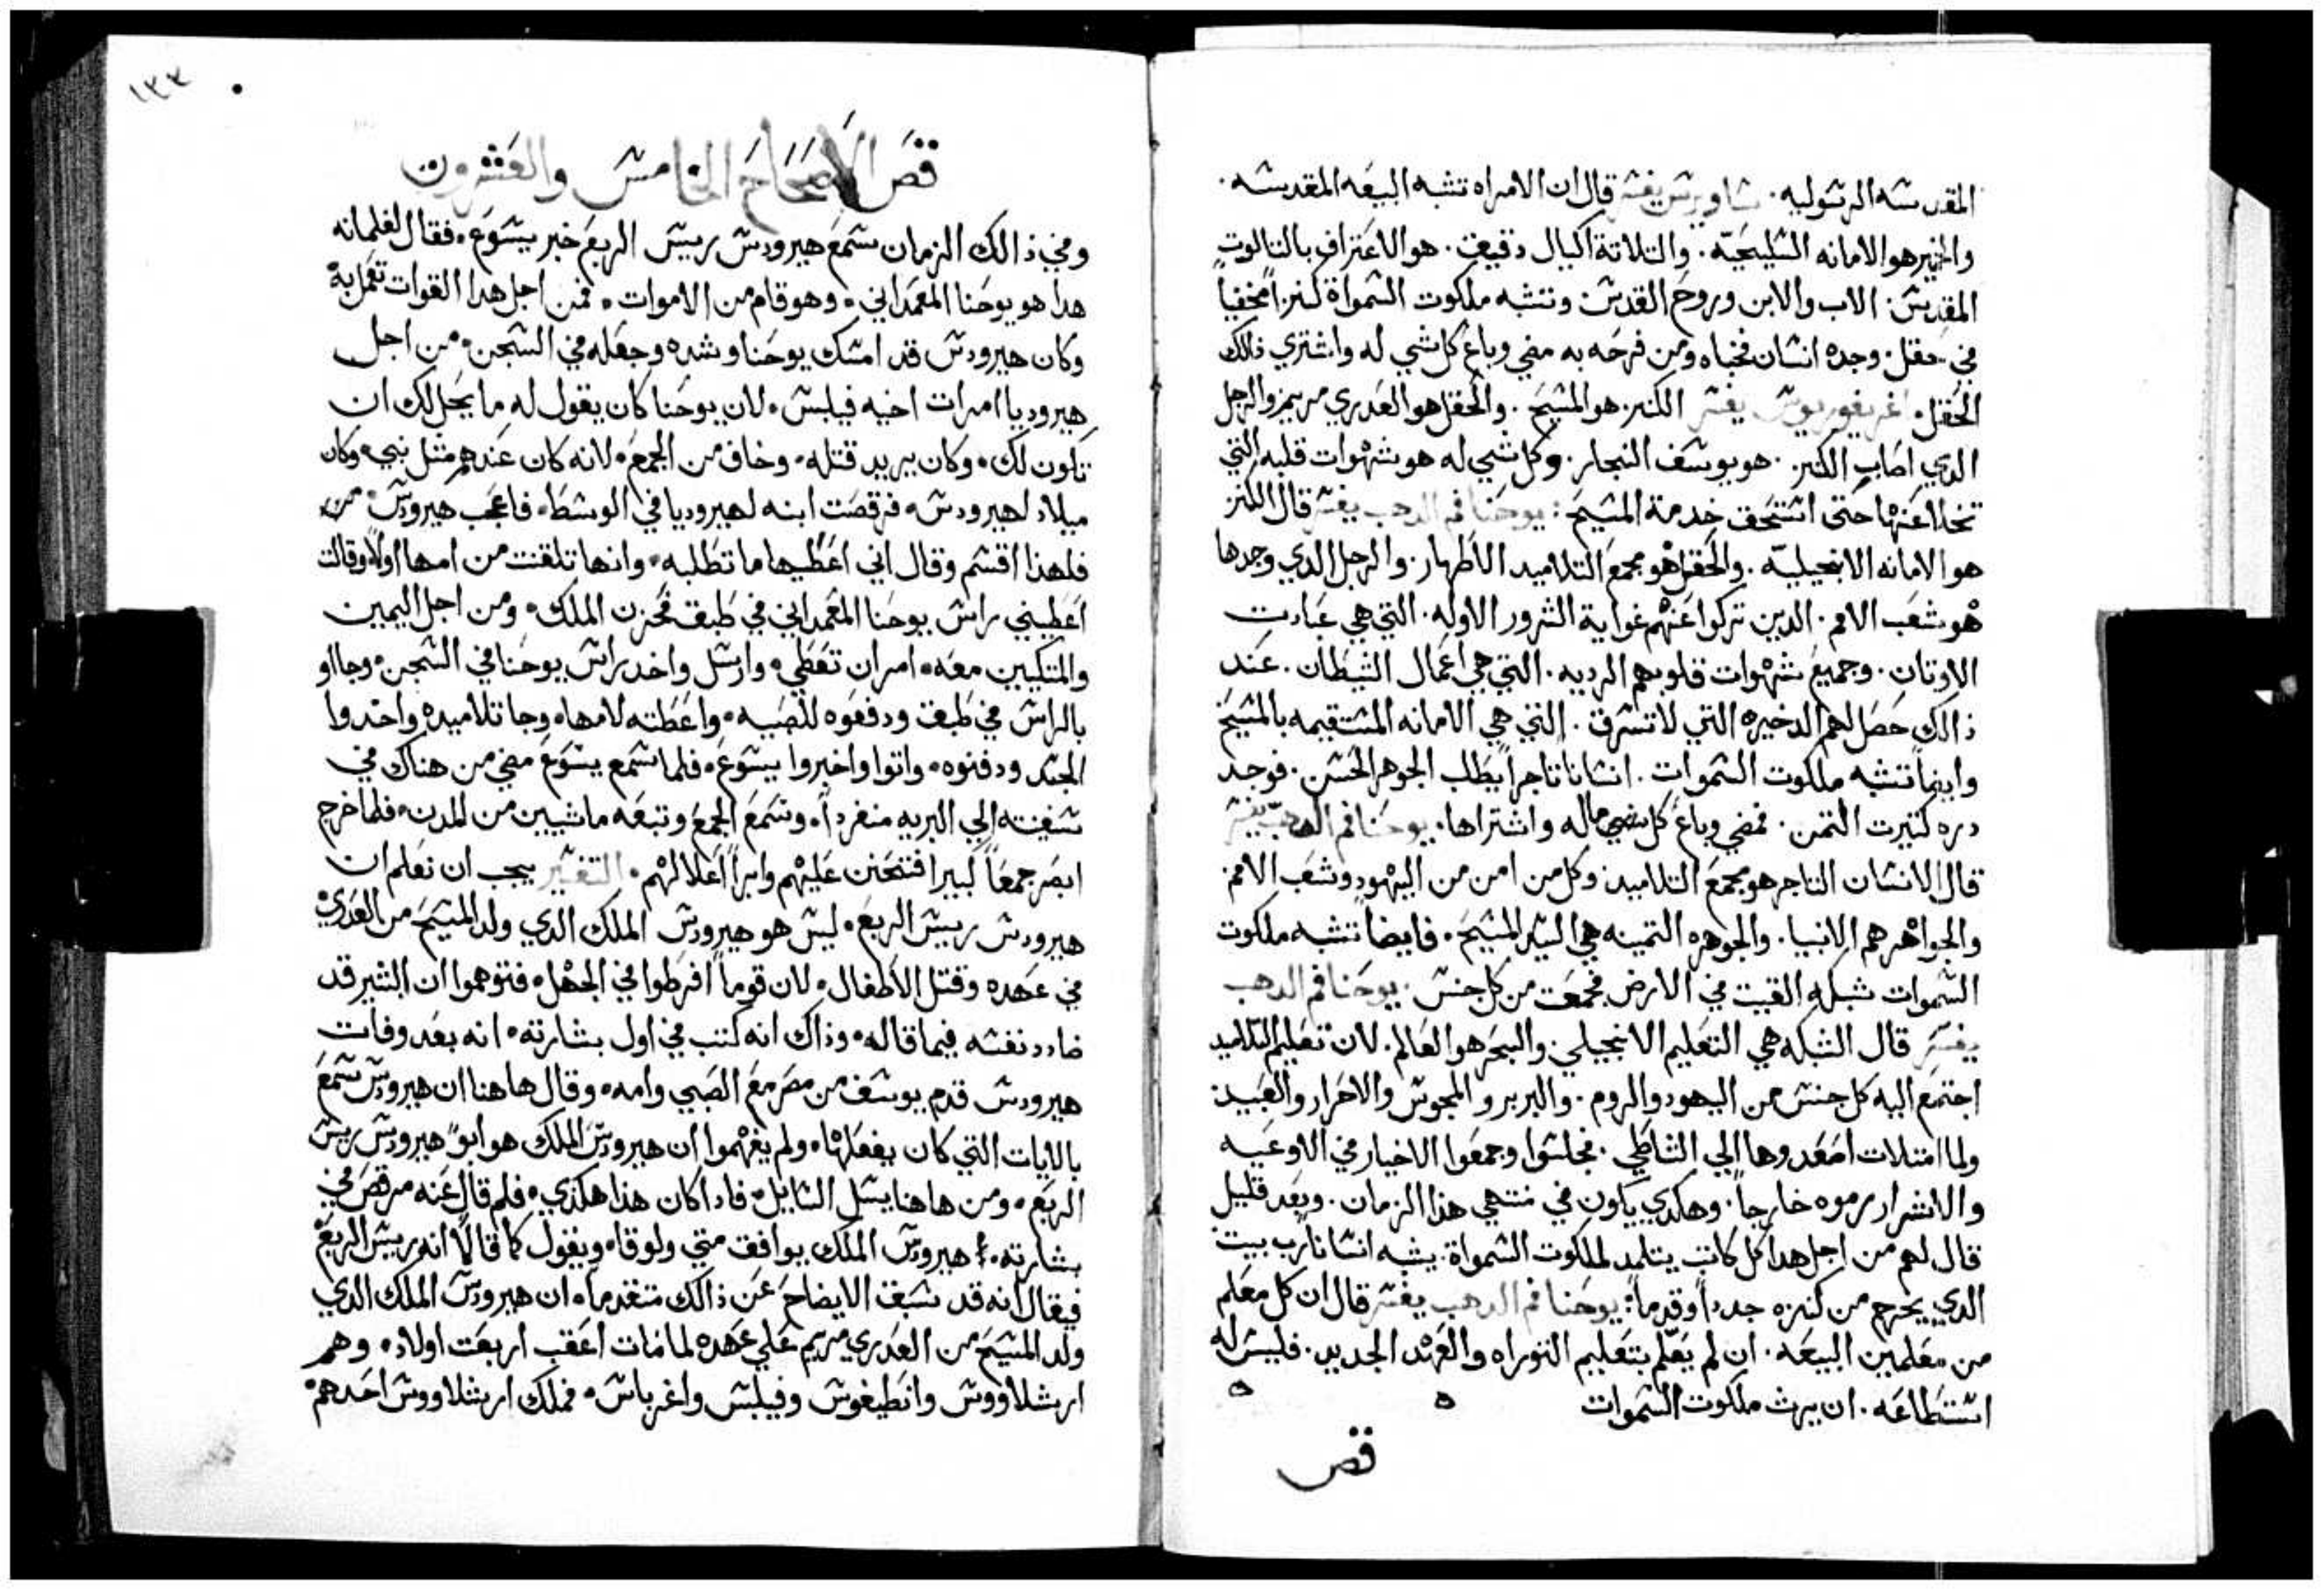 المقدسه الرسوليه. ساويرس يفسر قال ان الامراه تشبه البيعه المقدسه.
والخمير هو الامانه السليحيّه. والتلاتة اكيال دقيق. هو الاعتراف بالتالوت
المقدس. الاب والابن وروح القدس وتشبه ملكوت السمواة كنزاً مخفياً
في حقل. وجده انسان فخباه ومن فرحه به مضي وباع كل شي له واشتري ذالك
الحقل. اغريغوريوس يفسر الكنز هو المسيح. والحقل هو العدري مريم والرجل
الدي اصاب الكنز. هو يوسف النجار. وكل شي له هو شهوات قلبه التي
تخلا عنها حتى استحق خدمة المسيح: يوحنا فم الدهب يفسر قال الكنز
هو الامانه الانجيليّه. والحقل هو مجمع التلاميد الاطهار. والرجل الدي وجدها
هو شعب الامم. الدين تركوا عنهم غواية الشرور الاوله. التي هي عبادت
الاوتان. وجميع شهوات قلوبهم الرديه. التي هي اعمال الشيطان. عند
ذالك حصل لهم الدخيره التي لا تسرق. التي هي الامانه المستقيمه بالمسيح
وايضاً تشبه ملكوت السموات. انساناً تاجراً يطلب الجوهر الحسن. فوجد
دره كتيرت التمن. فمضي وباع كل شي ماله واشتراها. يوحنا فم الدهب يفسر
قال الانسان التاجر هو مجمع التلاميد وكل من امن من اليهود وشعب الامم.
والجواهر هم الانبيا. والجوهره التمينه هي السيد المسيح. فايضاً تشبه ملكوت
السموات شبكه القيت في الارض فجمعت من كل جنس. يوحنا فم الدهب
يفسر قال الشبكه هي التعليم الانجيلي. والبحر هو العالم. لان تعليم التلاميد
اجتمع اليه كل جنس من اليهود والروم. والبربر والمجوس والاحرار والعبيد
ولما امتلات اصعدوها الي الشاطي. فجلسوا وجمعوا الاخيار في الاوعيه
والاشرار رموه خارجاً. وهكدي يكون في منتهي هذا الزمان. وبعد قليل
قال لهم من اجل هدا كل كاتب يتلمد لملكوت السمواة. يشبه انساناً رب بيت
الدي يخرج من كنزه جدداً وقدماً: يوحنا فم الدهب يفسر قال ان كل معلم
من معلمين البيعه. ان لم يعّلم بتعليم التوراه والعهد الجديد. فليس له
استطاعه. ان يرث ملكوت السموات
فص
فصَ الاَصحَاحَ الخامسَ والعَشرون
وفي ذالك الزمان سمع هيرودس رييس الربع خبر يسوع. فقال لغلمانه
هدا هو يوحنا المعمداني. وهو قام من الاموات. فمن اجل هدا القوات تعمل به
وكان هيرودس قد امسك يوحنا وشده وجعله في السجن. من اجل
هيروديا امرات اخيه فيلبس. لان يوحنا كان يقول له ما يحل لك ان
تكون لك. وكان يريد قتله. وخاف من الجمع. لانه كان عندهم متل نبي. وكان
ميلاد لهيرودس. فرقصت ابنه لهيروديا في الوسط. فاعجب هيرودس. من
فلهذا اقسم وقال اني اعطيها ما تطلبه. وانها تلقنت من امها اولاً وقالت
اعطيني راس يوحنا المعمداني في طبق. فحزن الملك. ومن اجل اليمين
والمتكيين معه. امر ان تعطي. وارسل واخد راس يوحنا في السجن. وجااو
بالراس في طبق ودفعوه للصبيه. واعطته لامها. وجا تلاميده واخدوا
الجسد ودفنوه. واتوا واخبروا يسوع. فلما سمع يسوع مضي من هناك في
سفينته الي البريه منفرداً. وسمع الجمع وتبعه ماشيين من المدن. فلما خرج
ابصر جمعاً كبيراً فتحنن عليهم وابرا اعلالهم. التفسير يجب ان نعلم ان
هيرودس رييس الربع. ليس هو هيرودس الملك الدي ولد المسيح من العدري
في عهده وقتل الاطفال. لان قوماً افرطوا في الجهل. فتوهموا ان البشير قد
ضادد نفسه فيما قاله. وذاك انه كتب في اول بشارته. انه بعد وفات
هيرودس قدم يوسف من مصر مع الصبي وامه. وقال هاهنا ان هيرودس سمع
بالايات التي كان يفعلها. ولم يفهموا ان هيرودس الملك هو ابوً هيرودس رييس
الربع. ومن هاهنا يسل السايل. فادا كان هذا هكذي. فلم قال عنه مرقص في
بشارته. هيرودس الملك يوافق متي ولوقا. ويقول كما قالا انه رييس الربع
فيقال انه قد سبق الايضاح عن ذالك متقدماً. ان هيرودس الملك الدي
ولد المسيح من العدري مريم علي عهده لما مات اعقب اربعت اولاد. وهم
ارشلاووس وانطيغوس وفيلبس واغرباس. فملك ارشلاووس احدهم